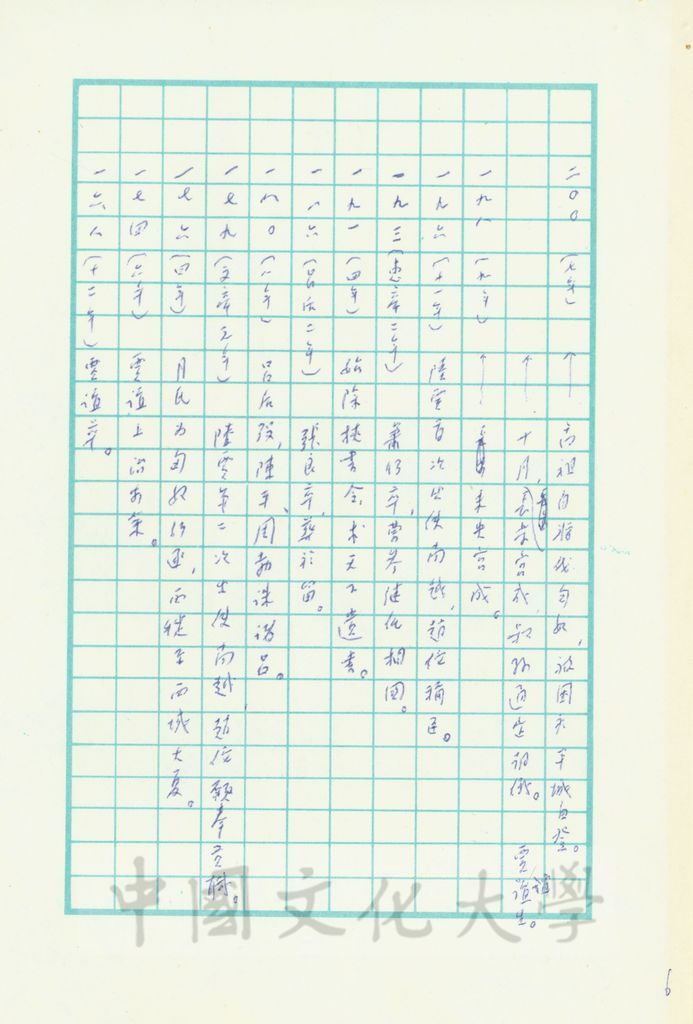 二〇〇（七年）→高祖自將伐匈奴，被困於平城白登。
→十月，長樂宮成，叔孫通定朝儀。賈誼生。
一九八（九年）→未央宮成。
一九六（十一年）陸賈首次出使南越，趙佗稱臣。
一九三（惠帝二年）蕭何卒，曹參繼任相國。
一九一（四年）始除挾書令，求天下遺書。
一八六（呂后二年）張良卒，葬於留。
一八〇（八年）呂后歿，陳平、周勃誅諸呂。
一七九（文帝元年）陸賈第二次出使南越，趙佗願奉貢職。
一七六（四年）月氏為匈奴所逐，西徙至西域大夏。
一七四（六年）賈誼上治安策。
一六八（十二年）賈誼卒。
中國文化大學
6